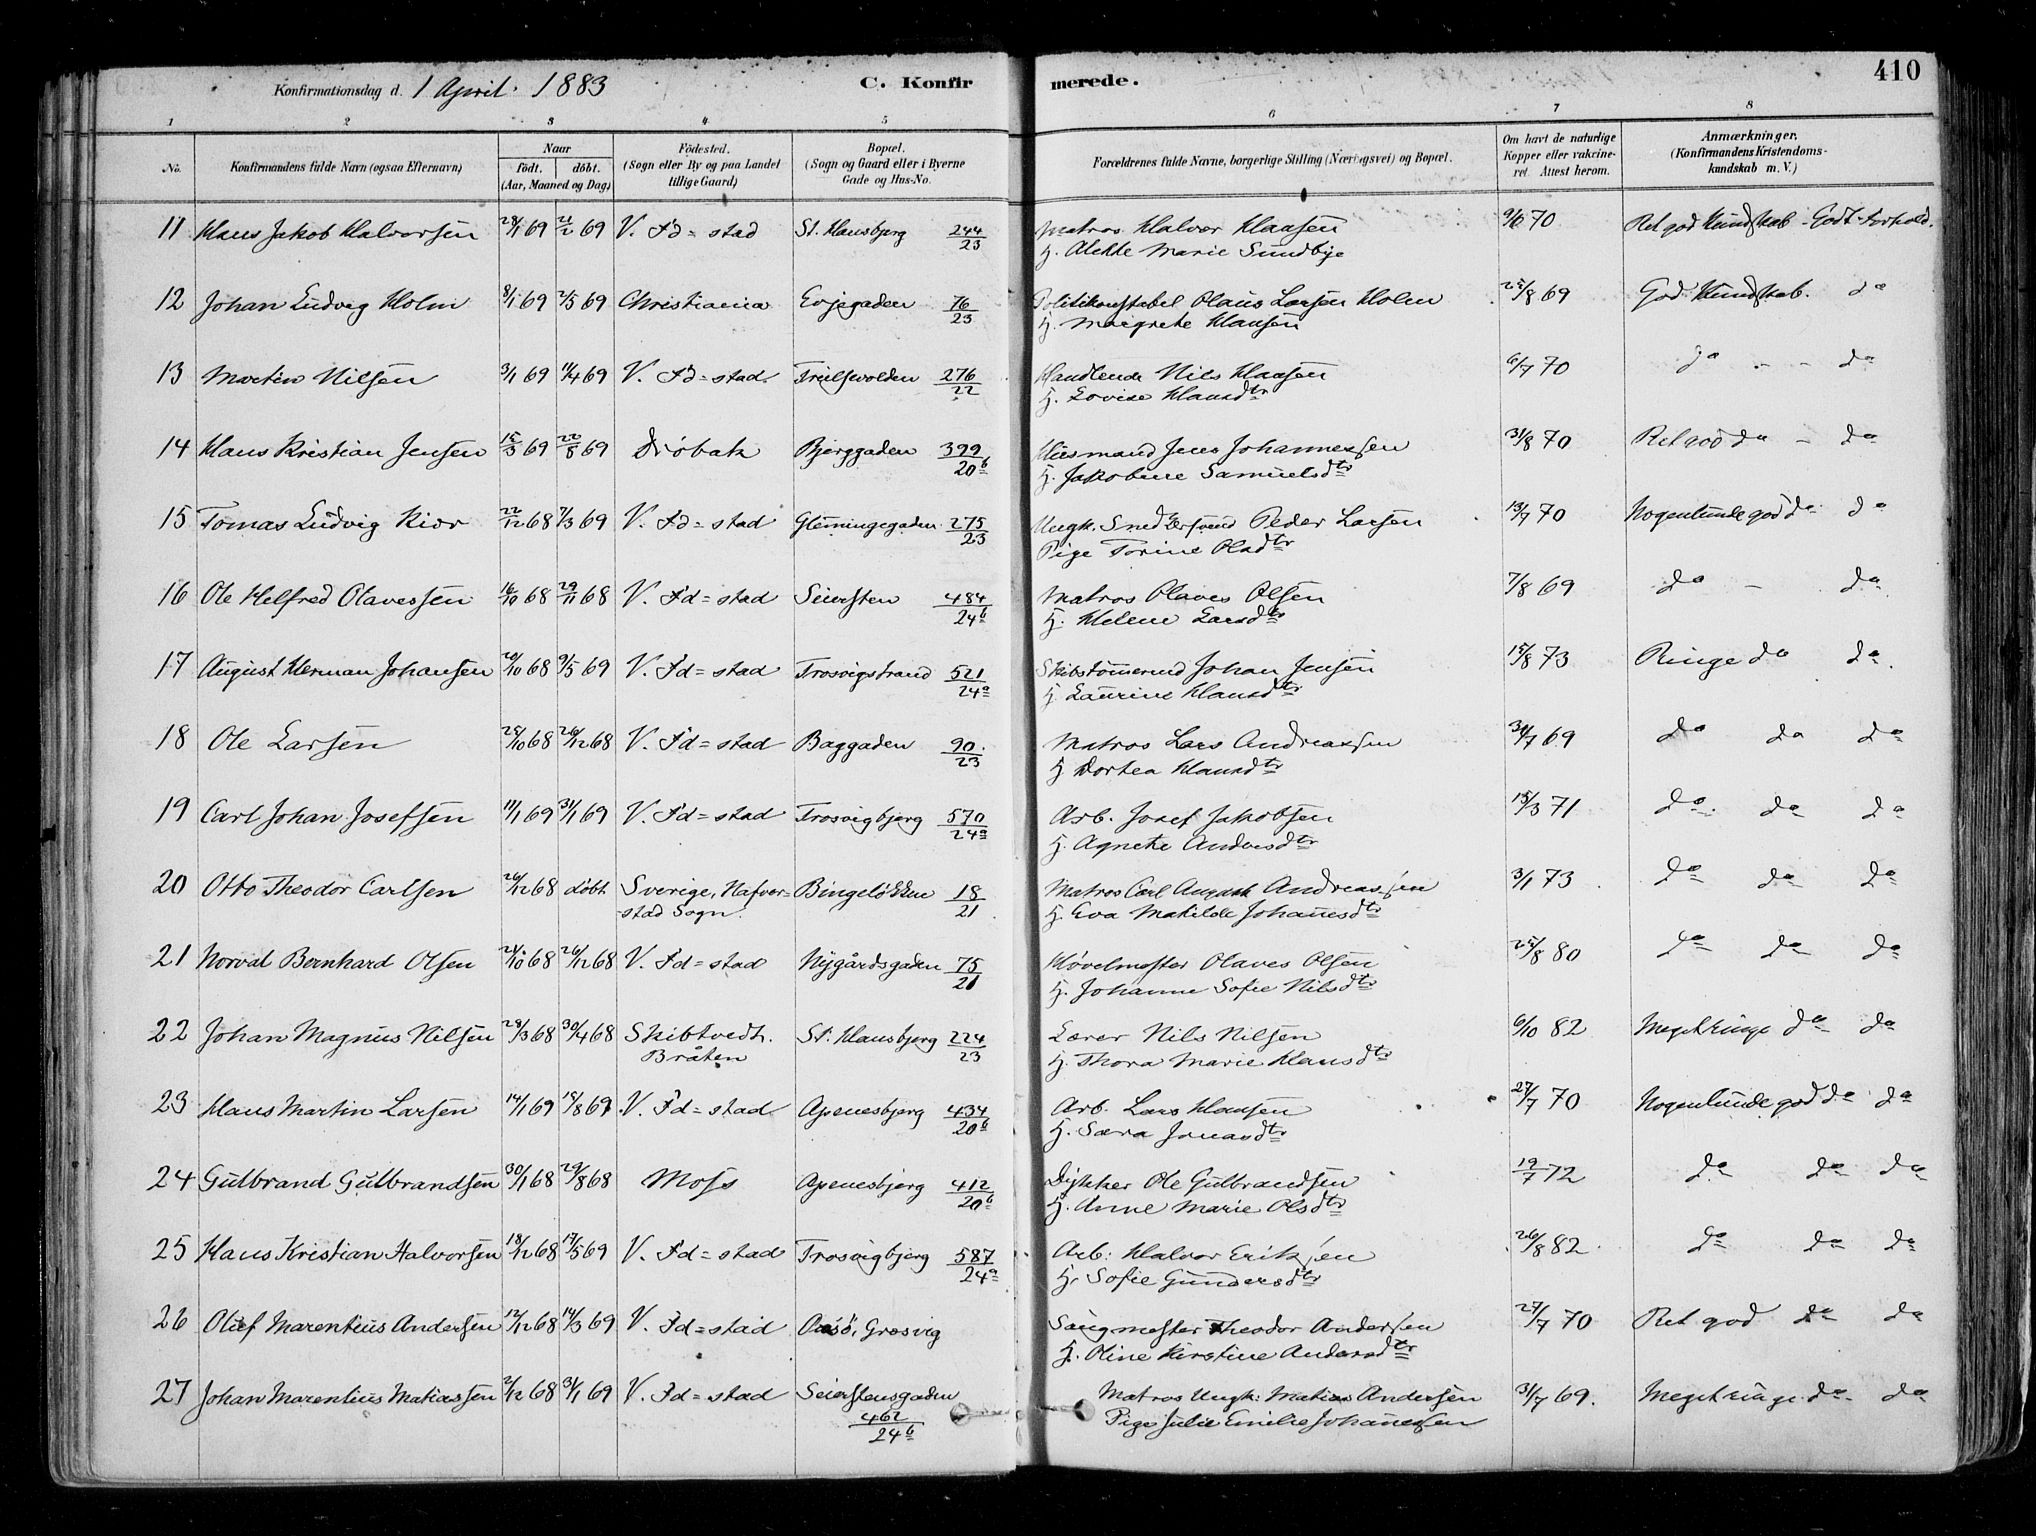 Konfirmationsdag d. 1 April. 1883 C. Konfirmerede. 410
1 2 3 4 5 6 7 8
No. Konfirmandens fulde Navn (ogsaa Efternavn) Naar født. døbt. (Aar, Maaned og Dag) Fødested. (Sogn eller By og paa Landet tillige Gaard) Bopæl. (Sogn og Gaard eller i Byerne Gade og Hus-No. Forældrenes fulde Navne, borgerlige Stilling (Næringsvei) og Bopæl. Om havt de naturlige Kopper eller vakcineret. Attest herom. Anmærkninger, (Konfirmandens Kristendomskundskab m. V.)
11 Hans Jakob Halvorsen 28/1 69 21/2 69 V. Fd=stad St. Hansbjerg 244/23 Matros Halvor Hansen 9/6 70 Ret god Kundskab - Godt Forhold.
H. Alette Marie Sundbye
12 Johan Ludvig Holm 8/1 69 2/5 69 Christiania Evjegaden 76/23 Politikonstabel Olaus Larsen Holm 25/8 69 God Kundskab. do
H. Margrete Hansen
13 Martin Nilsen 3/1 69 11/4 69 V. Fd=stad 276/22 Handlende Nils Hansen 6/7 70 do - - do
H. Lovise Hansdtr
14 Hans Kristian Jensen 15/3 69 22/8 69 Drøbak Bjerggaden 399/20b Husmand Jens Johannessen 31/8 70 Ret god do - do
H. Jakobine Samuelsdtr
15 Tomas Ludvig Kior 22/12 68 7/3 69 V. Fd=stad Glemmingegaden 275/23 Ungk. Snedkersvend Peder Larsen 13/7 70 Nogenlunde god do do
Pige Torine Olsdtr
16 Ole Helfred Olavessen 16/10 68 29/11 68 V. Fd=stad Seiersten 484/24b Matros Olaves Olsen 7/8 69 do - do
H. Helene Larsdtr
17 August Herman Johansen 20/10 68 9/5 69 V. Fd=stad Trosvigstrand 521/24a Skibstømmermd Johan Jensen 15/8 73 Ringe do do.
H. Laurine Hansdtr
18 Ole Larsen 25/10 68 26/12 68 V. Fd=stad Baggaden 90/23 Matros Lars Andreassen 30/7 69 do do do
H. Dortea Hansdtr
19 Carl Johan Josefsen 11/1 69 31/1 69 V. Fd=stad Trosvigbjerg 570/24a Arb. Josef Jakobsen 15/3 71 do. do do
H. Agnete Andersdtr
20 Otto Theodor Carlsen 26/12 68 døbt Sverige, Hafver-Bingeløkken 18/21 Matros Carl August Andreassen 3/1 73 do do do
stad Sogn. H. Eva Matilde Johannesdtr
21 Norvald Bernhard Olsen 21/10 68 26/12 68 V. Fd=stad Nygårdsgaden 75/21 Høvelmester Olaves Olsen 25/8 80 do do do
H. Johanne Sofie Nilsdtr
22 Johan Magnus Nilsen 28/3 68 30/4 68 Skibtvedt. St. Hansbjerg 224/23 Lærer Nils Nilsen 6/10 82 Meget ringe do do
Bråten H. Thora Marie Hansdtr
23 Hans Martin Larsen 14/1 69 15/8 69 V. Fd=stad Apenesbjerg 434/20b Arb. Lars Hansen 27/7 70 Nogenlunde god do do
H. Sara Jonasdtr
24 Gulbrand Gulbrandsen 30/1 68 29/8 68 Moss Apenesbjerg 412/20b Dykker Ole Gulbrandsen 19/7 72 do do do
H. Anne Marie Olsdtr
25 Hans Kristian Halvorsen 18/12 68 17/5 69 V. Fd=stad Trosvigbjerg 587/24a Arb. Halvor Eriksen 26/8 82 do do do
H. Sofie Gundersdtr
26 Oluf Marentius Andersen 12/12 68 14/3 69 V. Fd=stad Onsø, Gresvig Saugmester Theodor Andersen 27/7 70 Ret god do do
H. Oline Kirstine Andersdtr
27 Johan Marentius Matiassen 2/12 68 31/1 69 V. Fd=stad Seierstensgaden Matros Ungk: Matias Andersen 31/7 69. Meget ringe do do
462/24b Pige Julie Emilie Johannessen